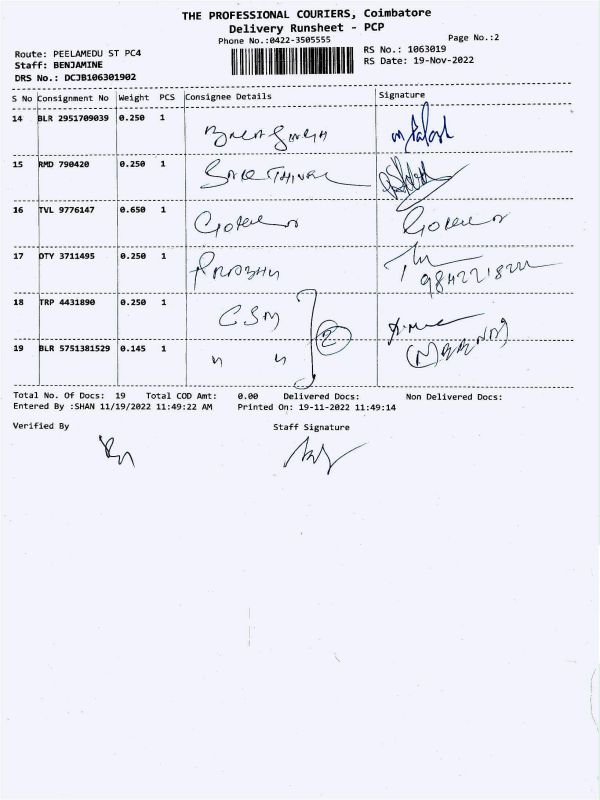 THE PROFESSIONAL COURIERS, Coimbatore
Delivery Runsheet - PCP
Phone No.:0422-3505555
Page No.:2
Route: PEELAMEDU ST PC4
RS No.: 1063019
Staff: BENJAMINE
RS Date: 19-Nov-2022
DRS No.: DCJB106301902
S No Consignment No Weight PCS Consignee Details Signature
14 BLR 2951709039 0.250 1
15 RMD 790420 0.250 1
16 TVL 9776147 0.650 1
17 OTY 3711495 0.250 1 PRABHU
18 TRP 4431890 0.250 1 CSM
2
19 BLR 5751381529 0.145 1 " "
Total No. Of Docs: 19 Total COD Amt: 0.00 Delivered Docs: Non Delivered Docs:
Entered By :SHAN 11/19/2022 11:49:22 AM Printed On: 19-11-2022 11:49:14
Verified By Staff Signature